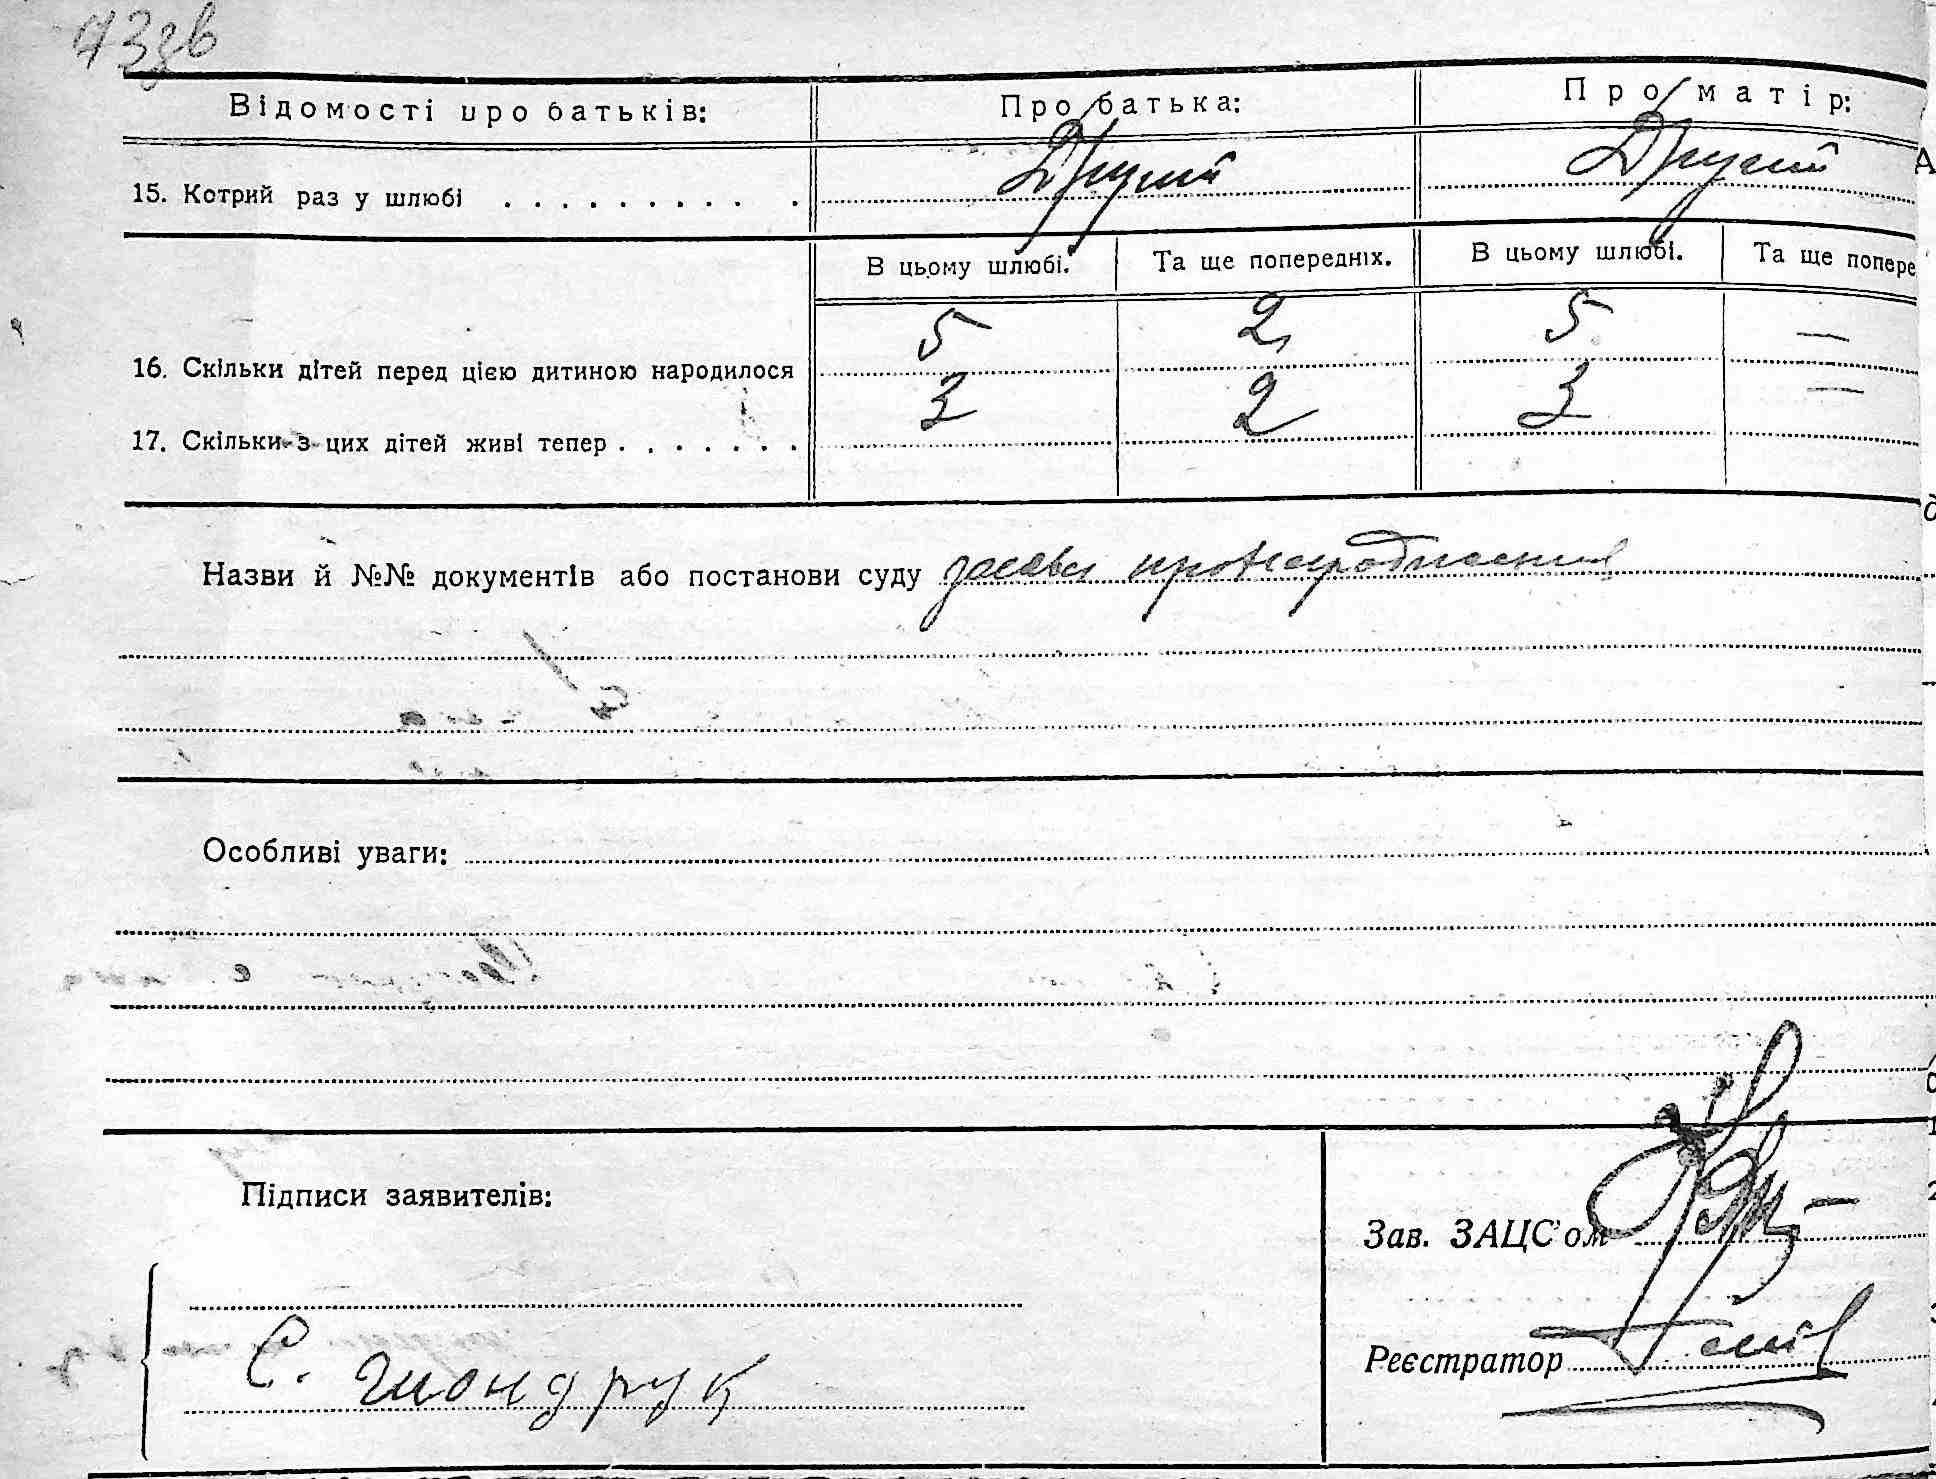 73зв
Відомості про батьків:
Про батька:
Про матір:
15. Котрий раз у шлюбі . . . . . . . . . . .
Другий
Другий
В цьому шлюбі.
Та ще попередніх.
В цьому шлюбі.
Та ще попере
16. Скільки дітей перед цією дитиною народилося
5
2
5
—
17. Скільки з цих дітей живі тепер . . . . . . .
3
2
3
—
Назви й №№ документів або постанови суду заява про народження
Особливі уваги:
Підписи заявителів:
Зав. ЗАЦС'ом
С.
Реєстратор